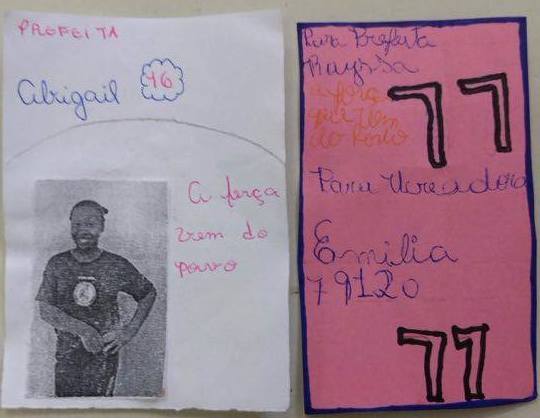 PROFEITA
Abrigail 16
A força
vem do
povo
Para Prefeita
Rayssa
a força
que vem
do Povo
77
Para Vereadora
Emilia
79120
77